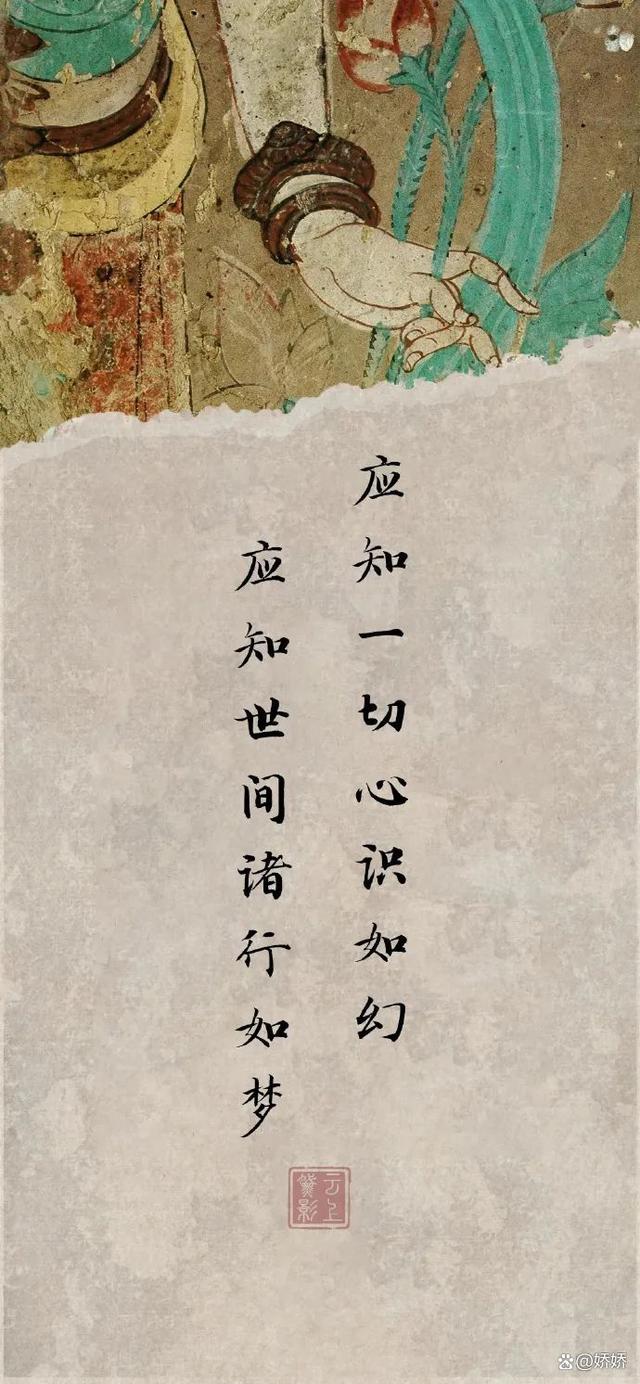 应知一切心识如幻
应知世间诸行如梦
云上
@娇娇